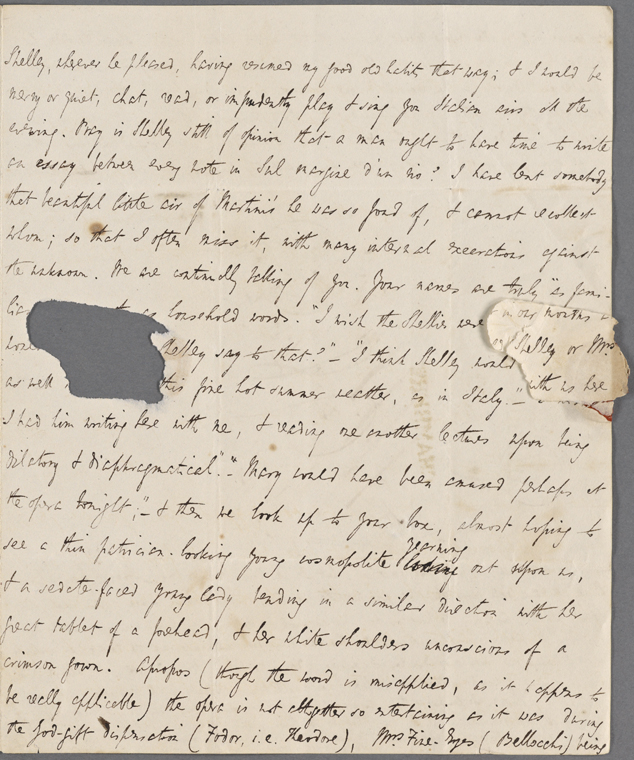 Shelley, wherever he pleased, having resumed my good old habits that way; & I would be
merry or quiet, chat, read, or impudently play & sing you Italian airs all the
evening. Pray is Shelley still of opinion that a man ought to have time to write
an essay between every note in Sul margine d'un rio? I have lent somebody
that beautiful little air of Martini's he was so fond of, & cannot recollect
whom; so that I often miss it, with many internal execrations against
the unknown. We are continually talking of you. Your names are truly "as fami-
lia as household words. "I wish the Shellies were in our mouths
woul Shelley say to that?" — "I think Shelley would as Shelley or Mrs
as well this fine hot summer weather, as in Italy." — with us here
I had him writing here with me, & reading one another lectures upon being
dilatory & diaphragmatical". — "Mary would have been amused perhaps at
the opera tonight;" — & then we look up to your box, almost hoping to
see a thin patrician-looking young cosmopolite yearning out upon us,
& a sedate-faced young lady bending in a similar direction with her
great tablet of a forehead, & her white shoulders unconscious of a
crimson gown. Apropos (though the word is misapplied, as it happens to
be really applicable) the opera is not altogether so entertaining as it was during
the god-gift dispensation (Fodor, i.e. Theodore), Mrs Fine-Eyes (Bellocchi) being